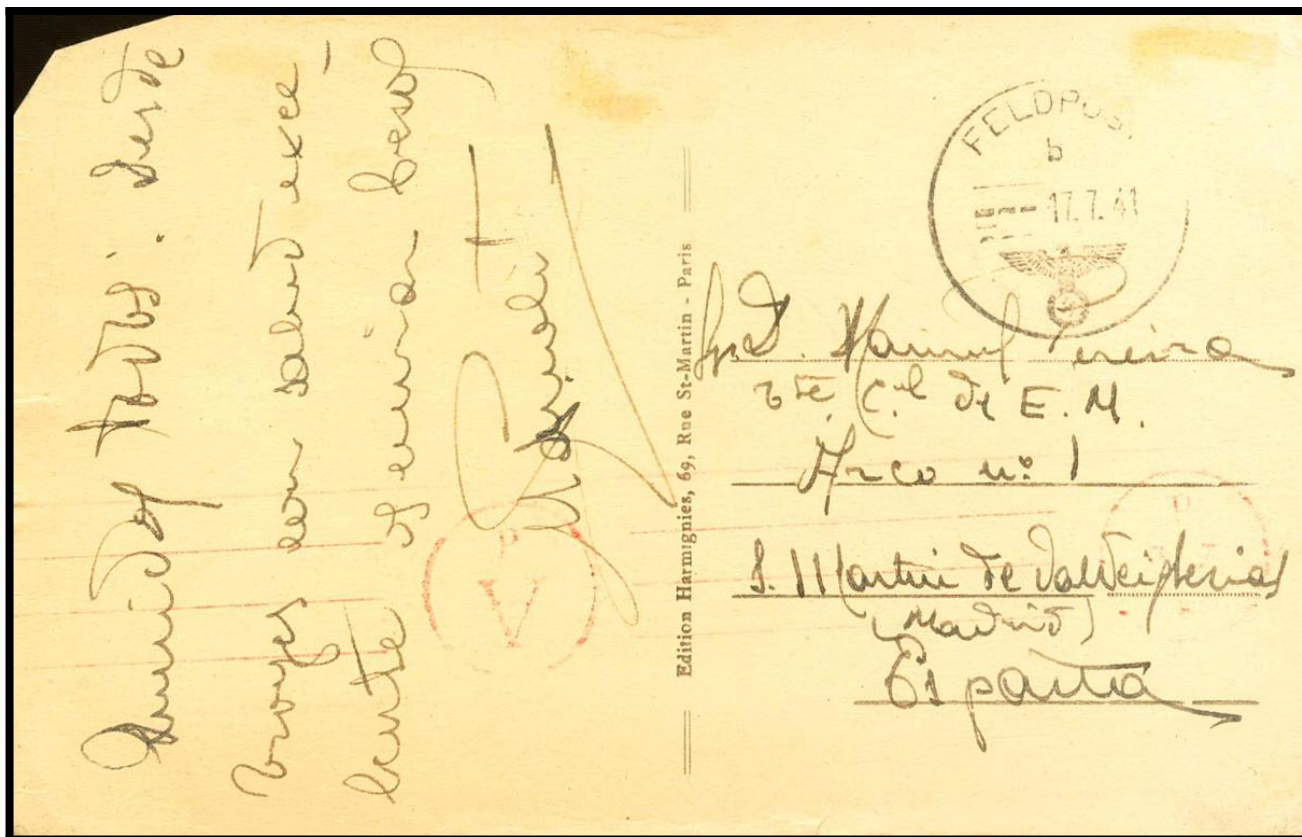 Queridos todos: desde
Troyes con salud exce-
lente os envia besos
Edition Harmignies, 69, Rue St-Martin - Paris
FELDPOST
b
17.7.41
Sr. D. Manuel
Tte. C.el de E. M.
Arco nº 1
S. Martin de Valdeiglesias
(Madrid)
España
P
V